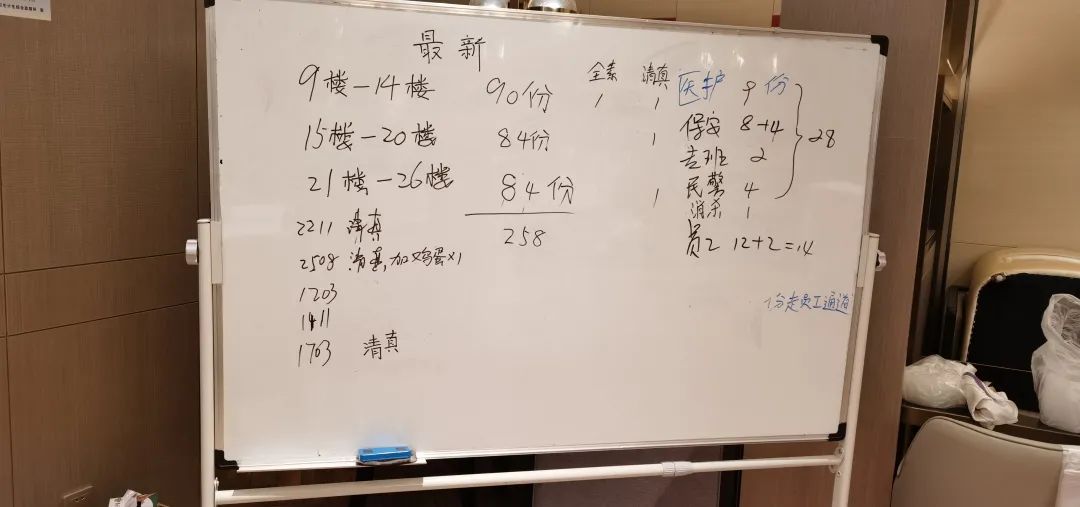 最新
9楼-14楼 90份 全素 1 清真 1
15楼-20楼 84份 1
21楼-26楼 84份 1
258
2211 清真
2508 加鸡蛋×1
1203
1411
1703 清真
医护 9份
保安 8+4
2
民警 4
消杀 1
28
员工 12+2=14
份走员工通道